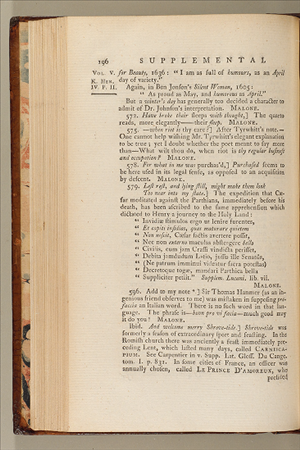 196 SUPPLEMENTAL
VOL. V.
K. HEN.
IV. P. II.
for Beauty, 1636: "I am as full of humours, as an April
day of variety."
Again, in Ben Jonson's Silent Woman, 1605:
"As proud as May, and humorous as April."
But a winter's day has generally too decided a character to
admit of Dr. Johnson's interpretation. MALONE.
572. Have broke their sleeps with thought,] The quarto
reads, more elegantly——their sleep. MALONE.
575. —when riot is thy care?] After Tyrwhitt's note.—
One cannot help wishing Mr. Tyrwhitt's elegant explanation
to be true; yet I doubt whether the poet meant to say more
than—What wilt thou do, when riot is thy regular business
and occupation? MALONE.
578. For what in me was purchas'd,] Purchased seems to
be here used in its legal sense, as opposed to an acquisition
by descent. MALONE.
579. Lest rest, and lying still, might make them look
Too near into my state.] The expedition that Cæ-
sar meditated against the Parthians, immediately before his
death, has been ascribed to the same apprehensions which
dictated to Henry a journey to the Holy Land:
"Invidiæ stimulos
"Et
"Non
"Nec non externo maculas abstergere bello
"Civilis, cum jam Crassi vindicta perisset,
"Debita jamdudum Latio, jussis ille Senatûs,
"(Ne patrum imminui videatur sacra potestas)
"Decretoque togæ, mandari Parthica bella
"Suppliciter petiit." Supplem. Lucani. lib. vii.
MALONE.
596. Add to my note *.] Sir Thomas Hanmer (as an in-
genious friend observes to me) was mistaken in supposing pro-
faccia an Italian word. There is no such word in that lan-
guage. The phrase is—buon pro vi faccia—much good may
it do you? MALONE.
Ibid. And welcome merry Shrove-tide.] Shrove-tide was
formerly a season of extraordinary sport and feasting. In the
Romish church there was anciently a feast immediately pre-
ceding Lent, which lasted many days, called CARNISCA-
PIUM. See Carpentier in v. Supp. Lat. Gloss. Du Cange,
tom. I. p. 831. In some cities of France, an officer was
annually chosen, called LE PRINCE D'AMOREUX, who
presided